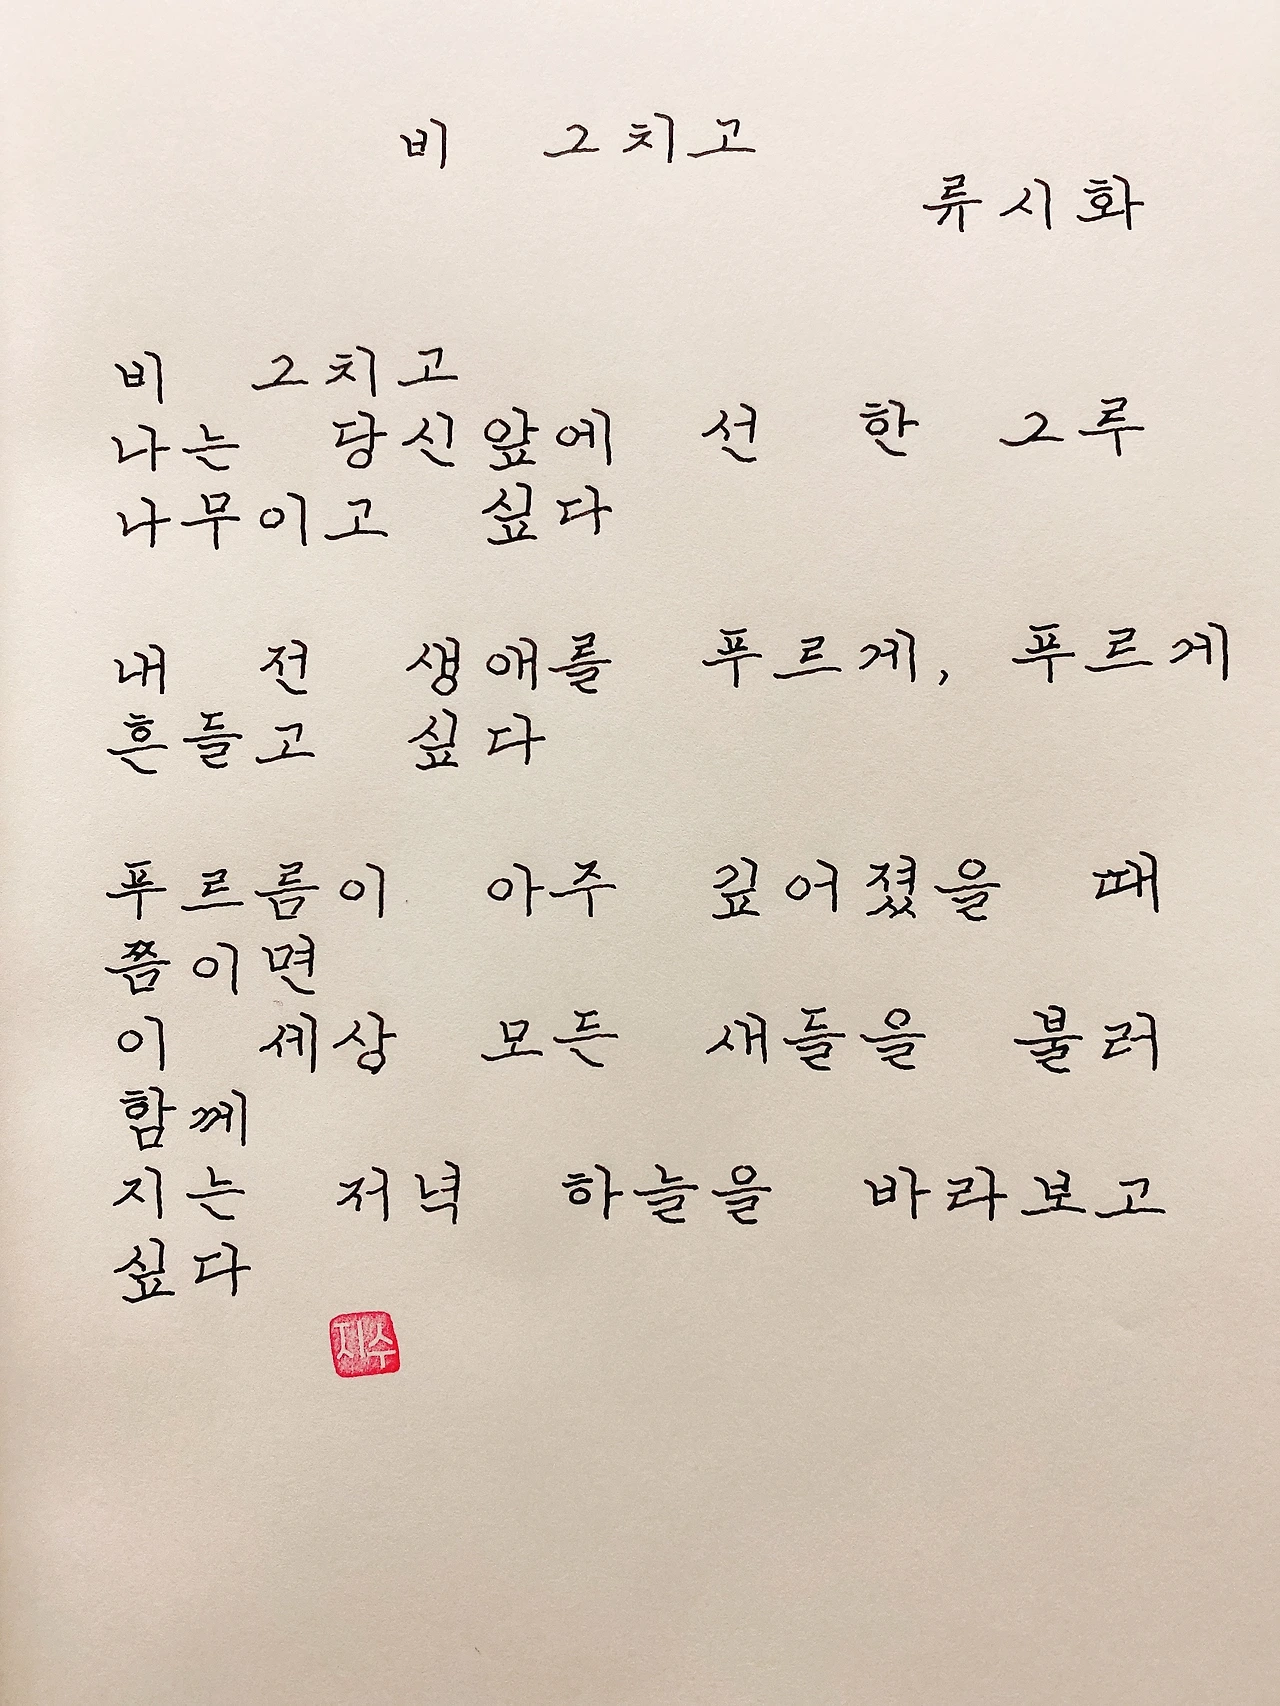 비 그치고
류시화
비 그치고
나는 당신앞에 선 한 그루
나무이고 싶다
내 전 생애를 푸르게, 푸르게
흔들고 싶다
푸르름이 아주 깊어졌을 때
쯤이면
이 세상 모든 새들을 불러
함께
지는 저녁 하늘을 바라보고
싶다
지수